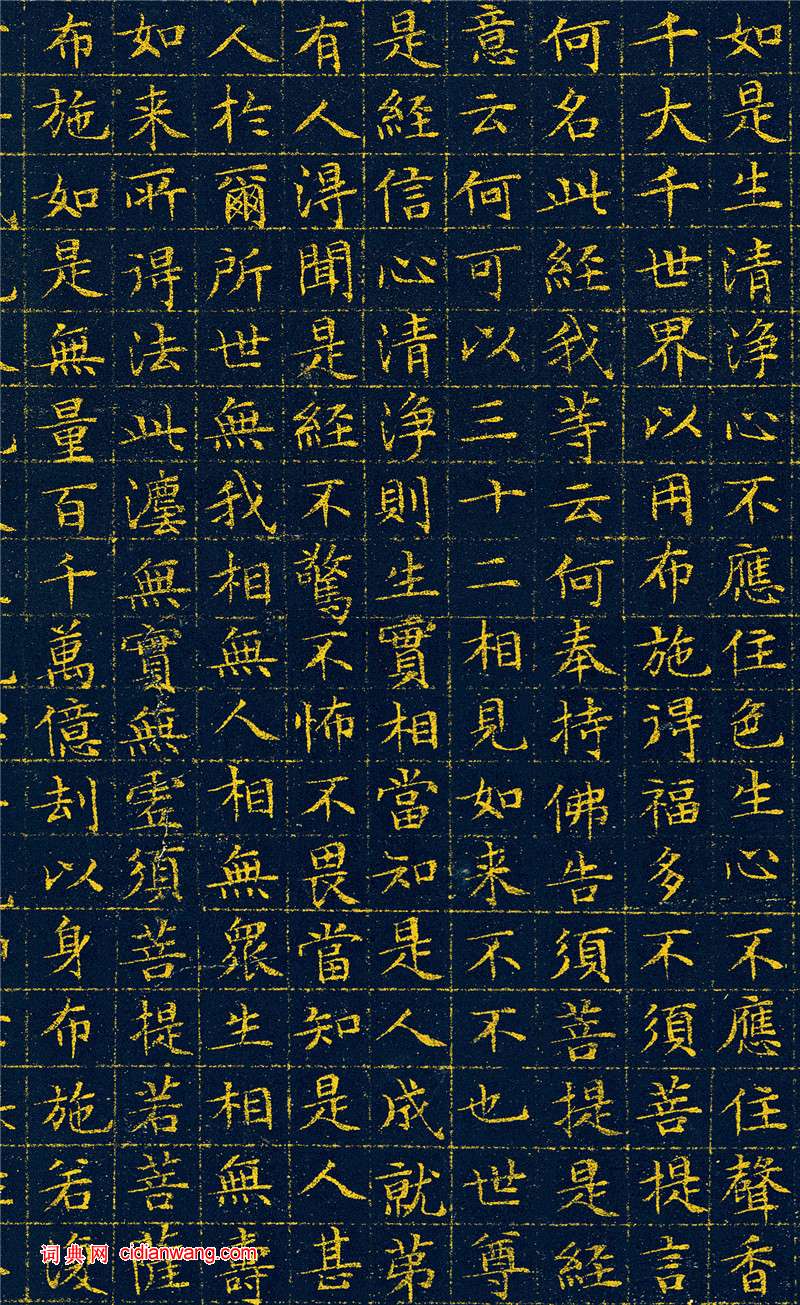 如是生清浄心不應住色生心不應住聲香
千大千世界以用布施得福多不須菩提言
何名此經我等云何奉持佛告須菩提是經
意云何可以三十二相見如来不不也世尊
是經信心清浄則生實相當知是人成就第
有人得聞是經不驚不怖不畏當知是人甚
人於爾所世無我相無人相無衆生相無壽
如来所得法此灋無實無虚須菩提若菩薩
布施如是無量百千萬億劫以身布施若復
词典网 cidianwang.com